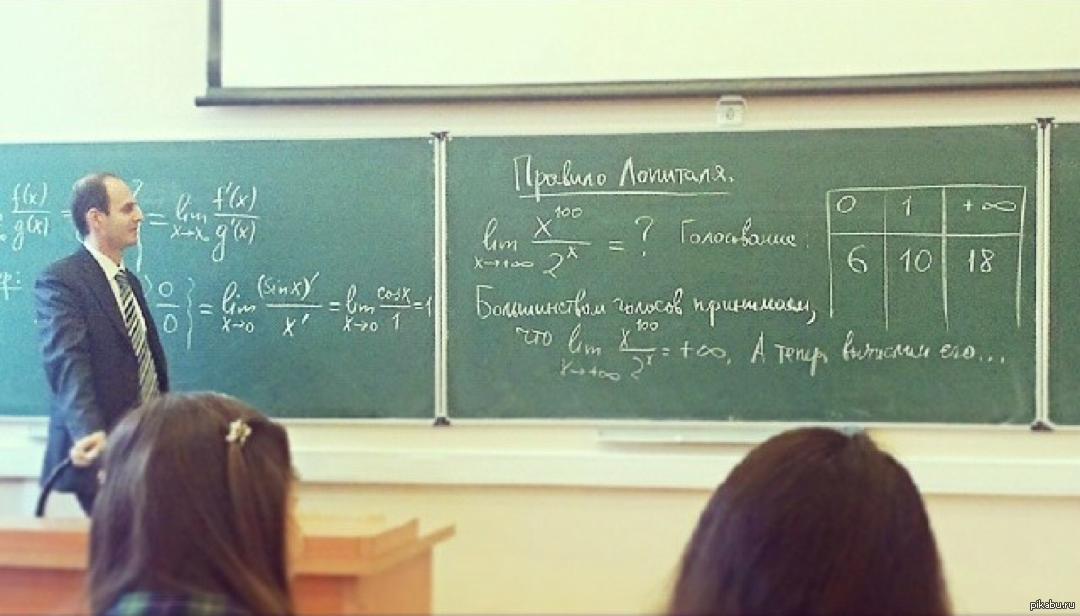 f(x)/g(x) = lim x→x₀ f'(x)/g'(x)
0/0 } = lim x→0 (sinx)'/x' = lim x→0 cosx/1 = 1
Правило Лопиталя.
lim x→+∞ x¹⁰⁰/2ˣ = ? Голосование:
0 1 +∞
6 10 18
Большинством голосов принимаем,
что lim x→+∞ x¹⁰⁰/2ˣ = +∞. А теперь вычислим его...
pikabu.ru